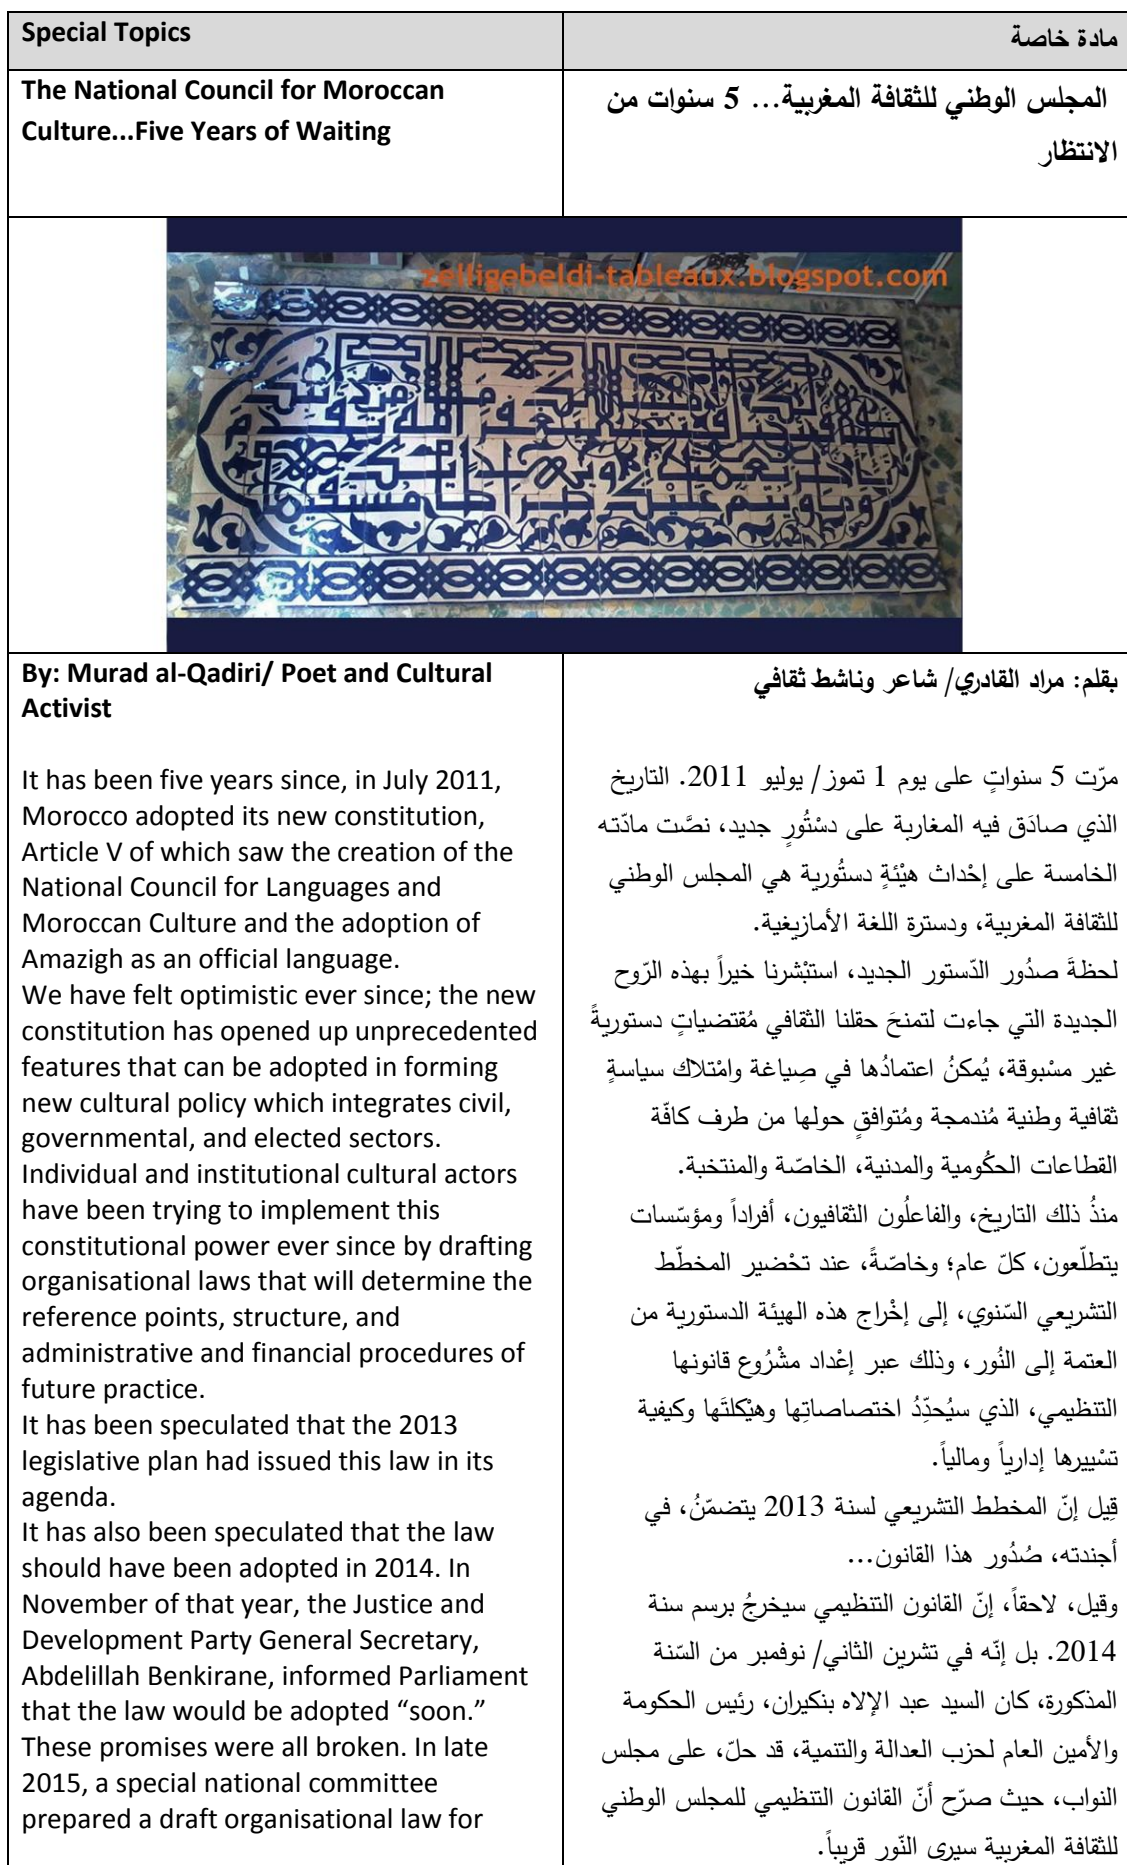 Special Topics
مادة خاصة
The National Council for Moroccan
Culture...Five Years of Waiting
المجلس الوطني للثقافة المغربية... 5 سنوات من
الانتظار
zelligebeldi-tableaux.blogspot.com
صراطا مستقيما
By: Murad al-Qadiri/ Poet and Cultural
Activist
It has been five years since, in July 2011,
Morocco adopted its new constitution,
Article V of which saw the creation of the
National Council for Languages and
Moroccan Culture and the adoption of
Amazigh as an official language.
We have felt optimistic ever since; the new
constitution has opened up unprecedented
features that can be adopted in forming
new cultural policy which integrates civil,
governmental, and elected sectors.
Individual and institutional cultural actors
have been trying to implement this
constitutional power ever since by drafting
organisational laws that will determine the
reference points, structure, and
administrative and financial procedures of
future practice.
It has been speculated that the 2013
legislative plan had issued this law in its
agenda.
It has also been speculated that the law
should have been adopted in 2014. In
November of that year, the Justice and
Development Party General Secretary,
Abdelillah Benkirane, informed Parliament
that the law would be adopted “soon.”
These promises were all broken. In late
2015, a special national committee
prepared a draft organisational law for
بقلم: مراد القادري/ شاعر وناشط ثقافي
مرّت 5 سنواتٍ على يوم 1 تموز/ يوليو 2011. التاريخ
الذي صادَق فيه المغاربة على دسْتُورٍ جديد، نصَّت مادّته
الخامسة على إحْداث هيْئةٍ دستُورية هي المجلس الوطني
للثقافة المغربية، ودسترة اللغة الأمازيغية.
لحظةَ صدُور الدّستور الجديد، استبْشرنا خيراً بهذه الرّوح
الجديدة التي جاءت لتمنحَ حقلنا الثقافي مُقتضياتٍ دستوريةً
غير مسْبوقة، يُمكنُ اعتمادُها في صِياغة وامْتلاك سياسةٍ
ثقافية وطنية مُندمجة ومُتوافقٍ حولها من طرف كافّة
القطاعات الحكُومية والمدنية، الخاصّة والمنتخبة.
منذُ ذلك التاريخ، والفاعلُون الثقافيون، أفراداً ومؤسّسات
يتطلّعون، كلّ عام؛ وخاصّةً، عند تحْضير المخطّط
التشريعي السّنوي، إلى إخْراج هذه الهيئة الدستورية من
العتمة إلى النُور، وذلك عبر إعْداد مشْرُوع قانونها
التنظيمي، الذي سيُحدِّدُ اختصاصاتِها وهيْكلتَها وكيفية
تسْييرها إدارياً ومالياً.
قِيل إنّ المخطط التشريعي لسنة 2013 يتضمّنُ، في
أجندته، صُدُور هذا القانون...
وقيل، لاحقاً، إنّ القانون التنظيمي سيخرجُ برسم سنة
2014. بل إنّه في تشرين الثاني/ نوفمبر من السّنة
المذكورة، كان السيد عبد الإلاه بنكيران، رئيس الحكومة
والأمين العام لحزب العدالة والتنمية، قد حلّ، على مجلس
النواب، حيث صرّح أنّ القانون التنظيمي للمجلس الوطني
للثقافة المغربية سيرى النّور قريباً.